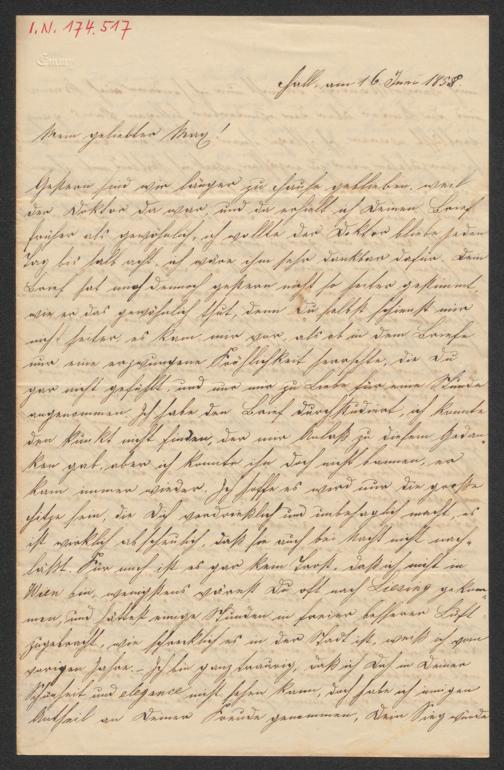 I.N. 174.517
Emmy
Hall, am 16. Juni 1858
Mein geliebter Max!
Gestern sind wir länger zu Hause geblieben, weil
der Doktor da war, und da erhielt ich Deinen Brief
früher als gewöhnlich, ich wollte der Doktor bliebe jeden
Tag bis halb acht, ich wäre ihm sehr dankbar dafür. Dein
Brief hat mich dennoch gestern nicht so heiter gestimmt,
wie er das gewöhnlich thut, denn Du selbst schienst mir
nicht heiter, es kam mir vor, als ob in dem Briefe
nur eine erzwungene Fröhlichkeit herrschte, die Du
gar nicht gefühlt und nur mir zu Liebe für eine Stunde
angenommen. Ich habe den Brief durchstudirt, ich konnte
den Punkt nicht finden, der mir Anlaß zu diesem Gedan-
ken gab, aber ich konnte ihn doch nicht bannen, er
kam immer wieder. Ich hoffe es wird nur die große
Hitze sein, die Dich verdrießlich und unbehaglich macht, es
ist wirklich abscheulich, daß sie auch bei Nacht nicht nach-
läßt. Für mich ist es gar kein Trost, daß ich nicht in
Wien bin, wenigstens wärest Du oft nach Liesing gekom-
men, und hättest einige Stunden in freier besserer Luft
zugebracht, wie schrecklich es in der Stadt ist, weiß ich vom
vorigen Jahre. – Ich bin ganz traurig, daß ich Dich in Deiner
Schönheit und elegance nicht sehen kann, doch habe ich innigen
Antheil an Deiner Freude genommen, Dein Sieg wurde